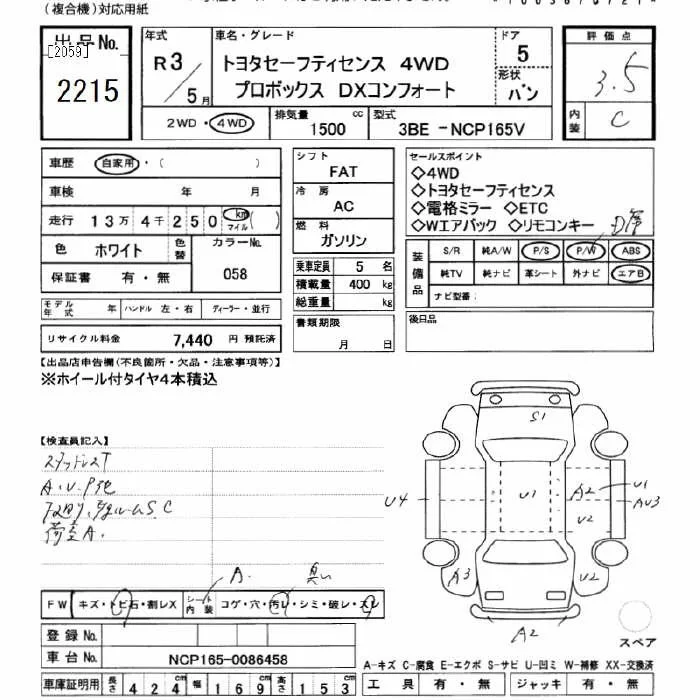 (複合機)対応用紙
出品No.
[2059]
2215
年式
R3/5月
車名・グレード
トヨタセーフティセンス 4WD
プロボックス DXコンフォート
ドア
5
形状
バン
評価点
3.5
内装
C
2WD・4WD
排気量
1500 cc
型式
3BE -NCP165V
車歴 自家用・( )
車検 年 月
走行 13万4千250 km マイル( )
色 ホワイト 色替
カラーNo. 058
保証書 有・無
シフト
FAT
冷房
AC
燃料
ガソリン
乗車定員 5 名
積載量 400 kg
総重量 kg
セールスポイント
◇4WD
◇トヨタセーフティセンス
◇電格ミラー ◇ETC
◇Wエアバック ◇リモコンキー
装備品
S/R 純A/W P/S P/W ABS
純TV 純ナビ 革シート 外ナビ エアB
ナビ型番:
モデル年式 年 ハンドル 左・右 ディーラー・並行
リサイクル料金 7,440 円 預託済
書類期限
月 日
後日品
【出品店申告欄(不良箇所・欠品・注意事項等)】
※ホイール付タイヤ4本積込
【検査員記入】
スタッドレスT
A.U.P他
荷室A.
S1
U4
U1
A2
U1
AU3
U2
A3
U2
A2
スペア
A.
FW キズ・トビ石・割レX
シート内装 コゲ・穴・汚レ・シミ・破レ・スレ
登録No.
車台No. NCP165-0086458
車庫証明用 長さ 424 幅 169 高さ 153
A-キズ C-腐食 E-エクボ S-サビ U-凹ミ W-補修 XX-交換済
工具 有・無 ジャッキ 有・無